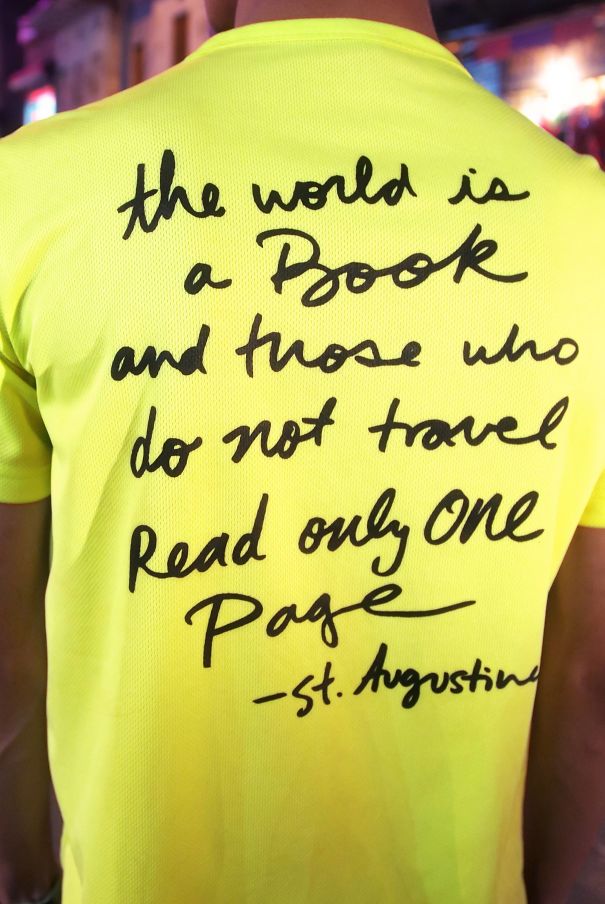 the world is
a Book
and those who
do not travel
Read only ONE
Page
-St. Augustine